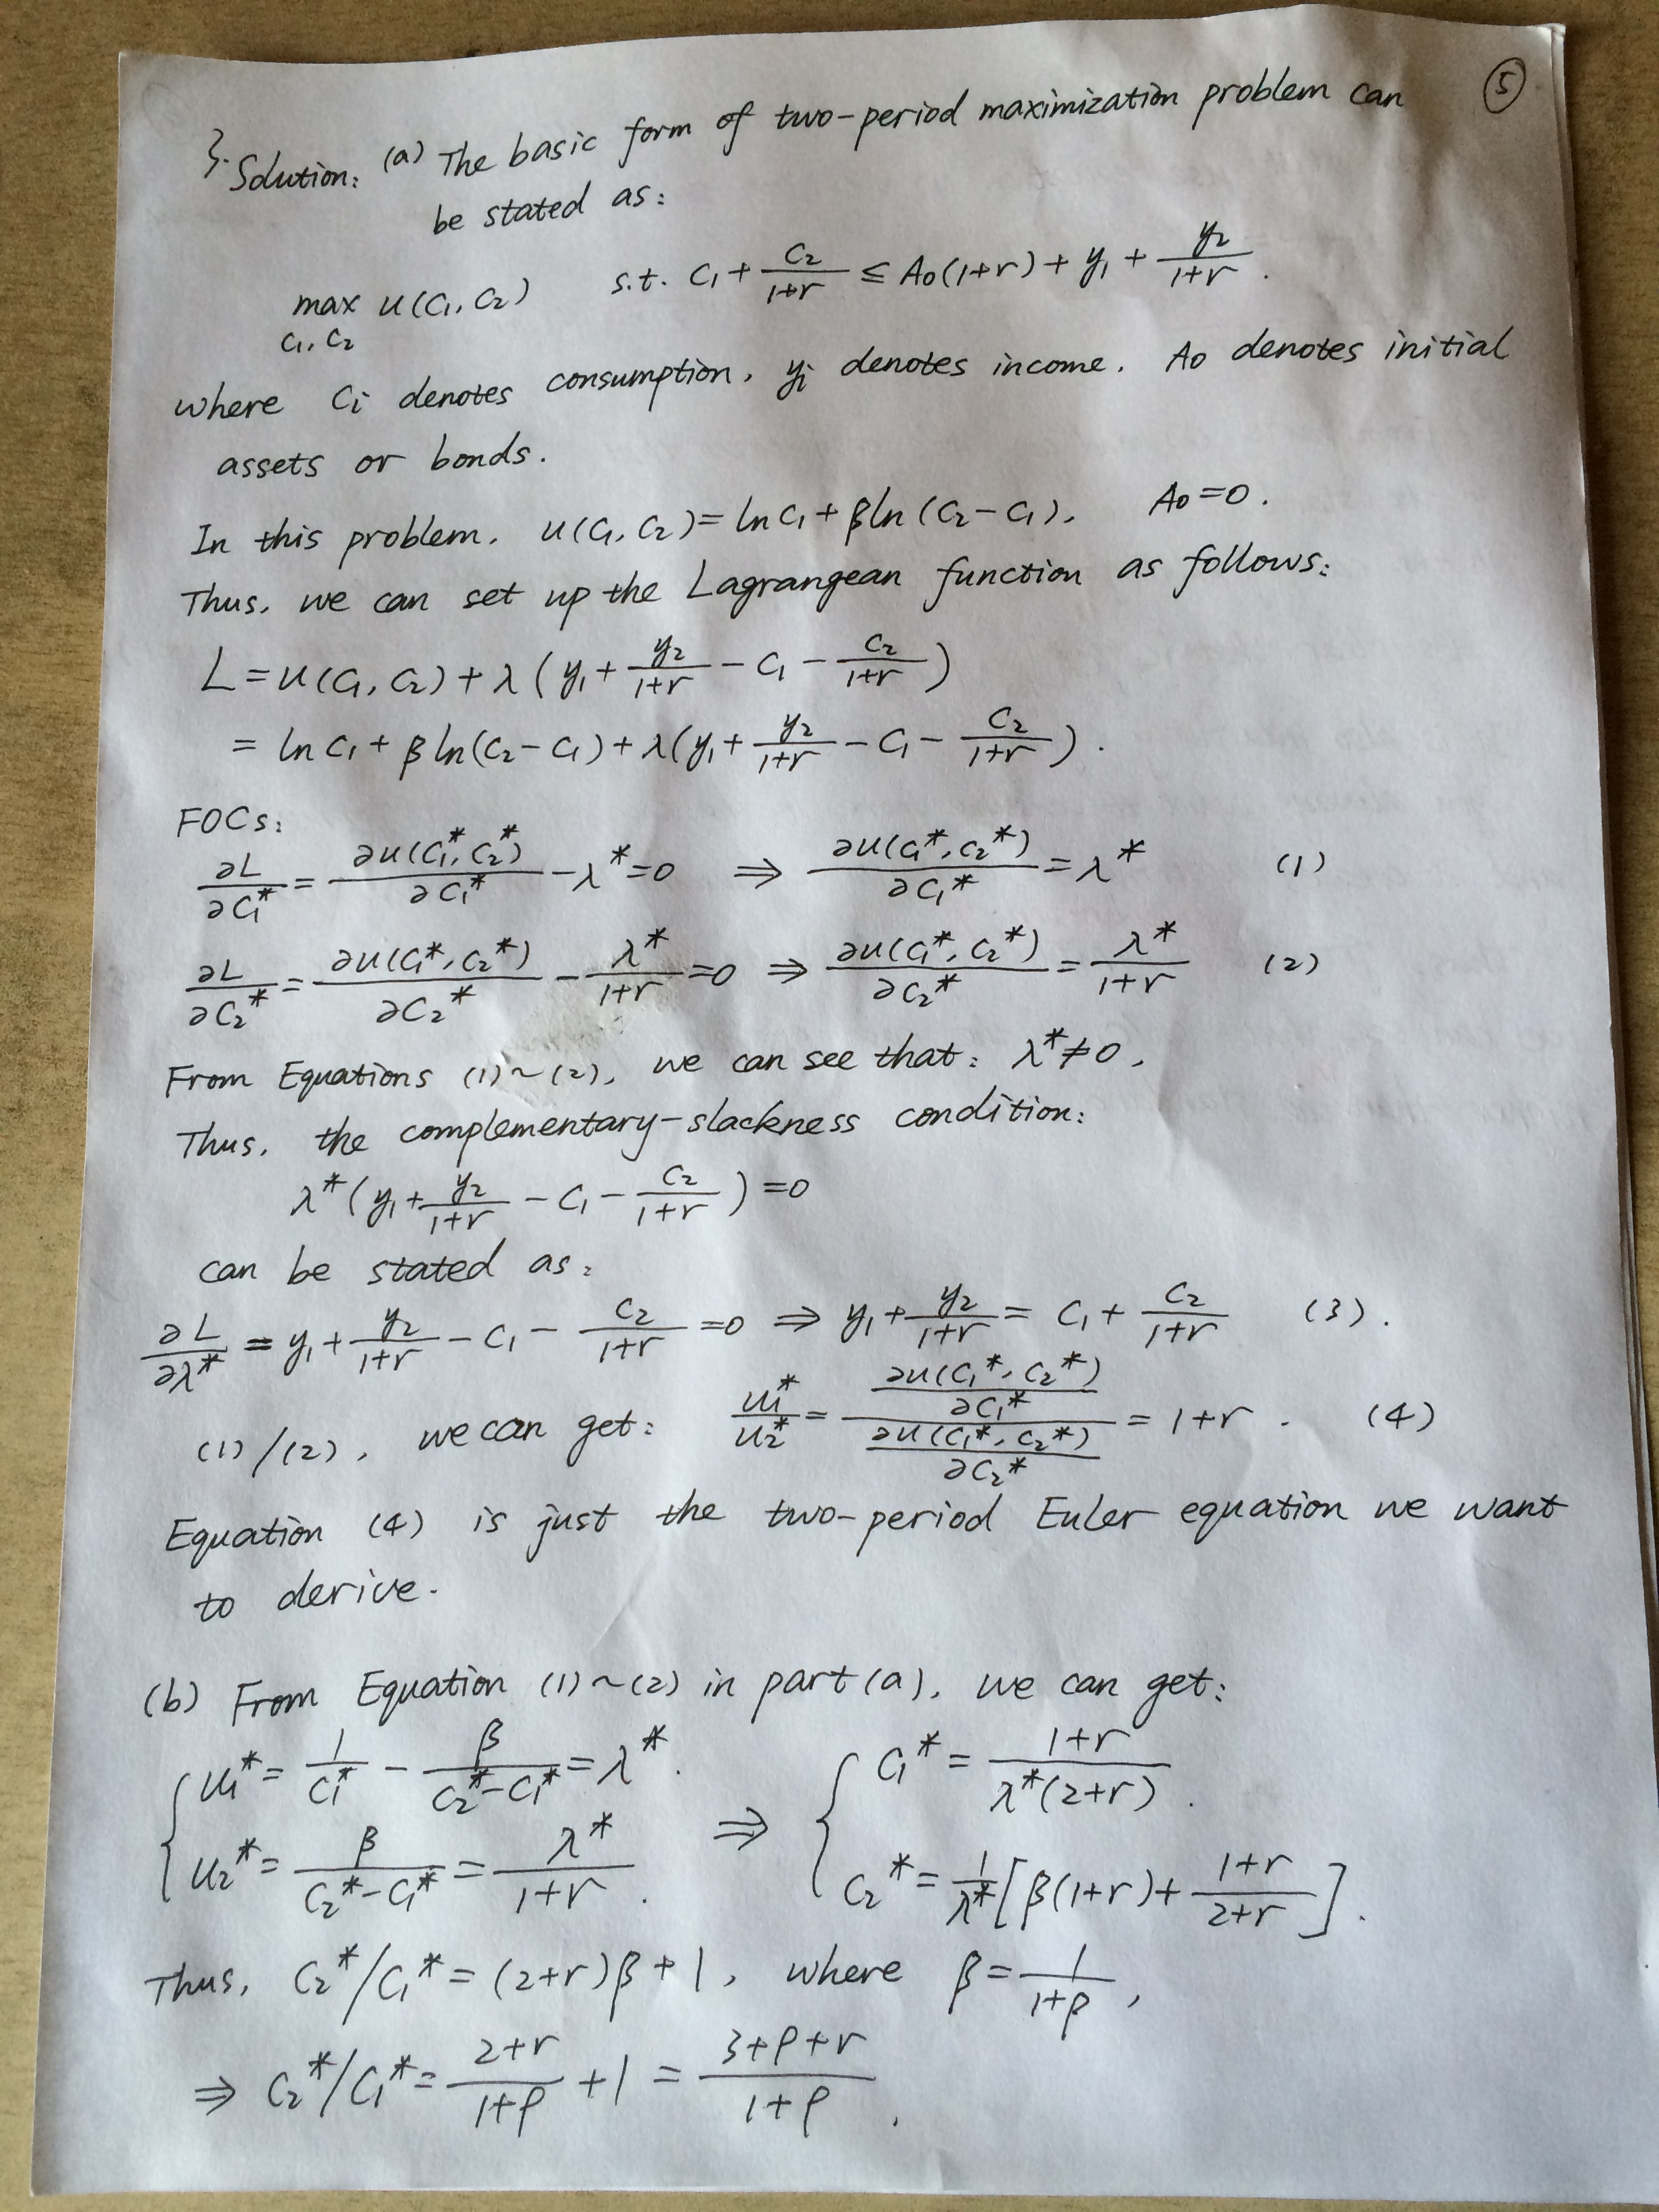 ⑤
3. Solution: (a) The basic form of two-period maximization problem can
be stated as:
max u(c₁, c₂) s.t. c₁ + c₂/(1+r) ≤ A₀(1+r) + y₁ + y₂/(1+r).
c₁, c₂
where cᵢ denotes consumption, yᵢ denotes income, A₀ denotes initial
assets or bonds.
In this problem, u(c₁, c₂) = ln c₁ + β ln (c₂ - c₁), A₀ = 0.
Thus, we can set up the Lagrangean function as follows:
L = u(c₁, c₂) + λ (y₁ + y₂/(1+r) - c₁ - c₂/(1+r))
= ln c₁ + β ln(c₂ - c₁) + λ(y₁ + y₂/(1+r) - c₁ - c₂/(1+r)).
FOCs:
∂L/∂c₁* = ∂u(c₁*, c₂*)/∂c₁* - λ* = 0 ⇒ ∂u(c₁*, c₂*)/∂c₁* = λ* (1)
∂L/∂c₂* = ∂u(c₁*, c₂*)/∂c₂* - λ*/(1+r) = 0 ⇒ ∂u(c₁*, c₂*)/∂c₂* = λ*/(1+r) (2)
From Equations (1)~(2), we can see that: λ* ≠ 0.
Thus, the complementary-slackness condition:
λ* (y₁ + y₂/(1+r) - c₁ - c₂/(1+r)) = 0
can be stated as:
∂L/∂λ* = y₁ + y₂/(1+r) - c₁ - c₂/(1+r) = 0 ⇒ y₁ + y₂/(1+r) = c₁ + c₂/(1+r) (3).
(1)/(2), we can get: u₁*/u₂* = (∂u(c₁*, c₂*)/∂c₁*)/(∂u(c₁*, c₂*)/∂c₂*) = 1+r. (4)
Equation (4) is just the two-period Euler equation we want
to derive.
(b) From Equation (1)~(2) in part (a), we can get:
{ u₁* = 1/c₁* - β/(c₂* - c₁*) = λ*. ⇒ { c₁* = (1+r)/(λ*(2+r)).
u₂* = β/(c₂* - c₁*) = λ*/(1+r). c₂* = 1/λ* [β(1+r) + (1+r)/(2+r)].
Thus, c₂*/c₁* = (2+r)β + 1, where β = 1/(1+ρ),
⇒ c₂*/c₁* = (2+r)/(1+ρ) + 1 = (3+ρ+r)/(1+ρ).